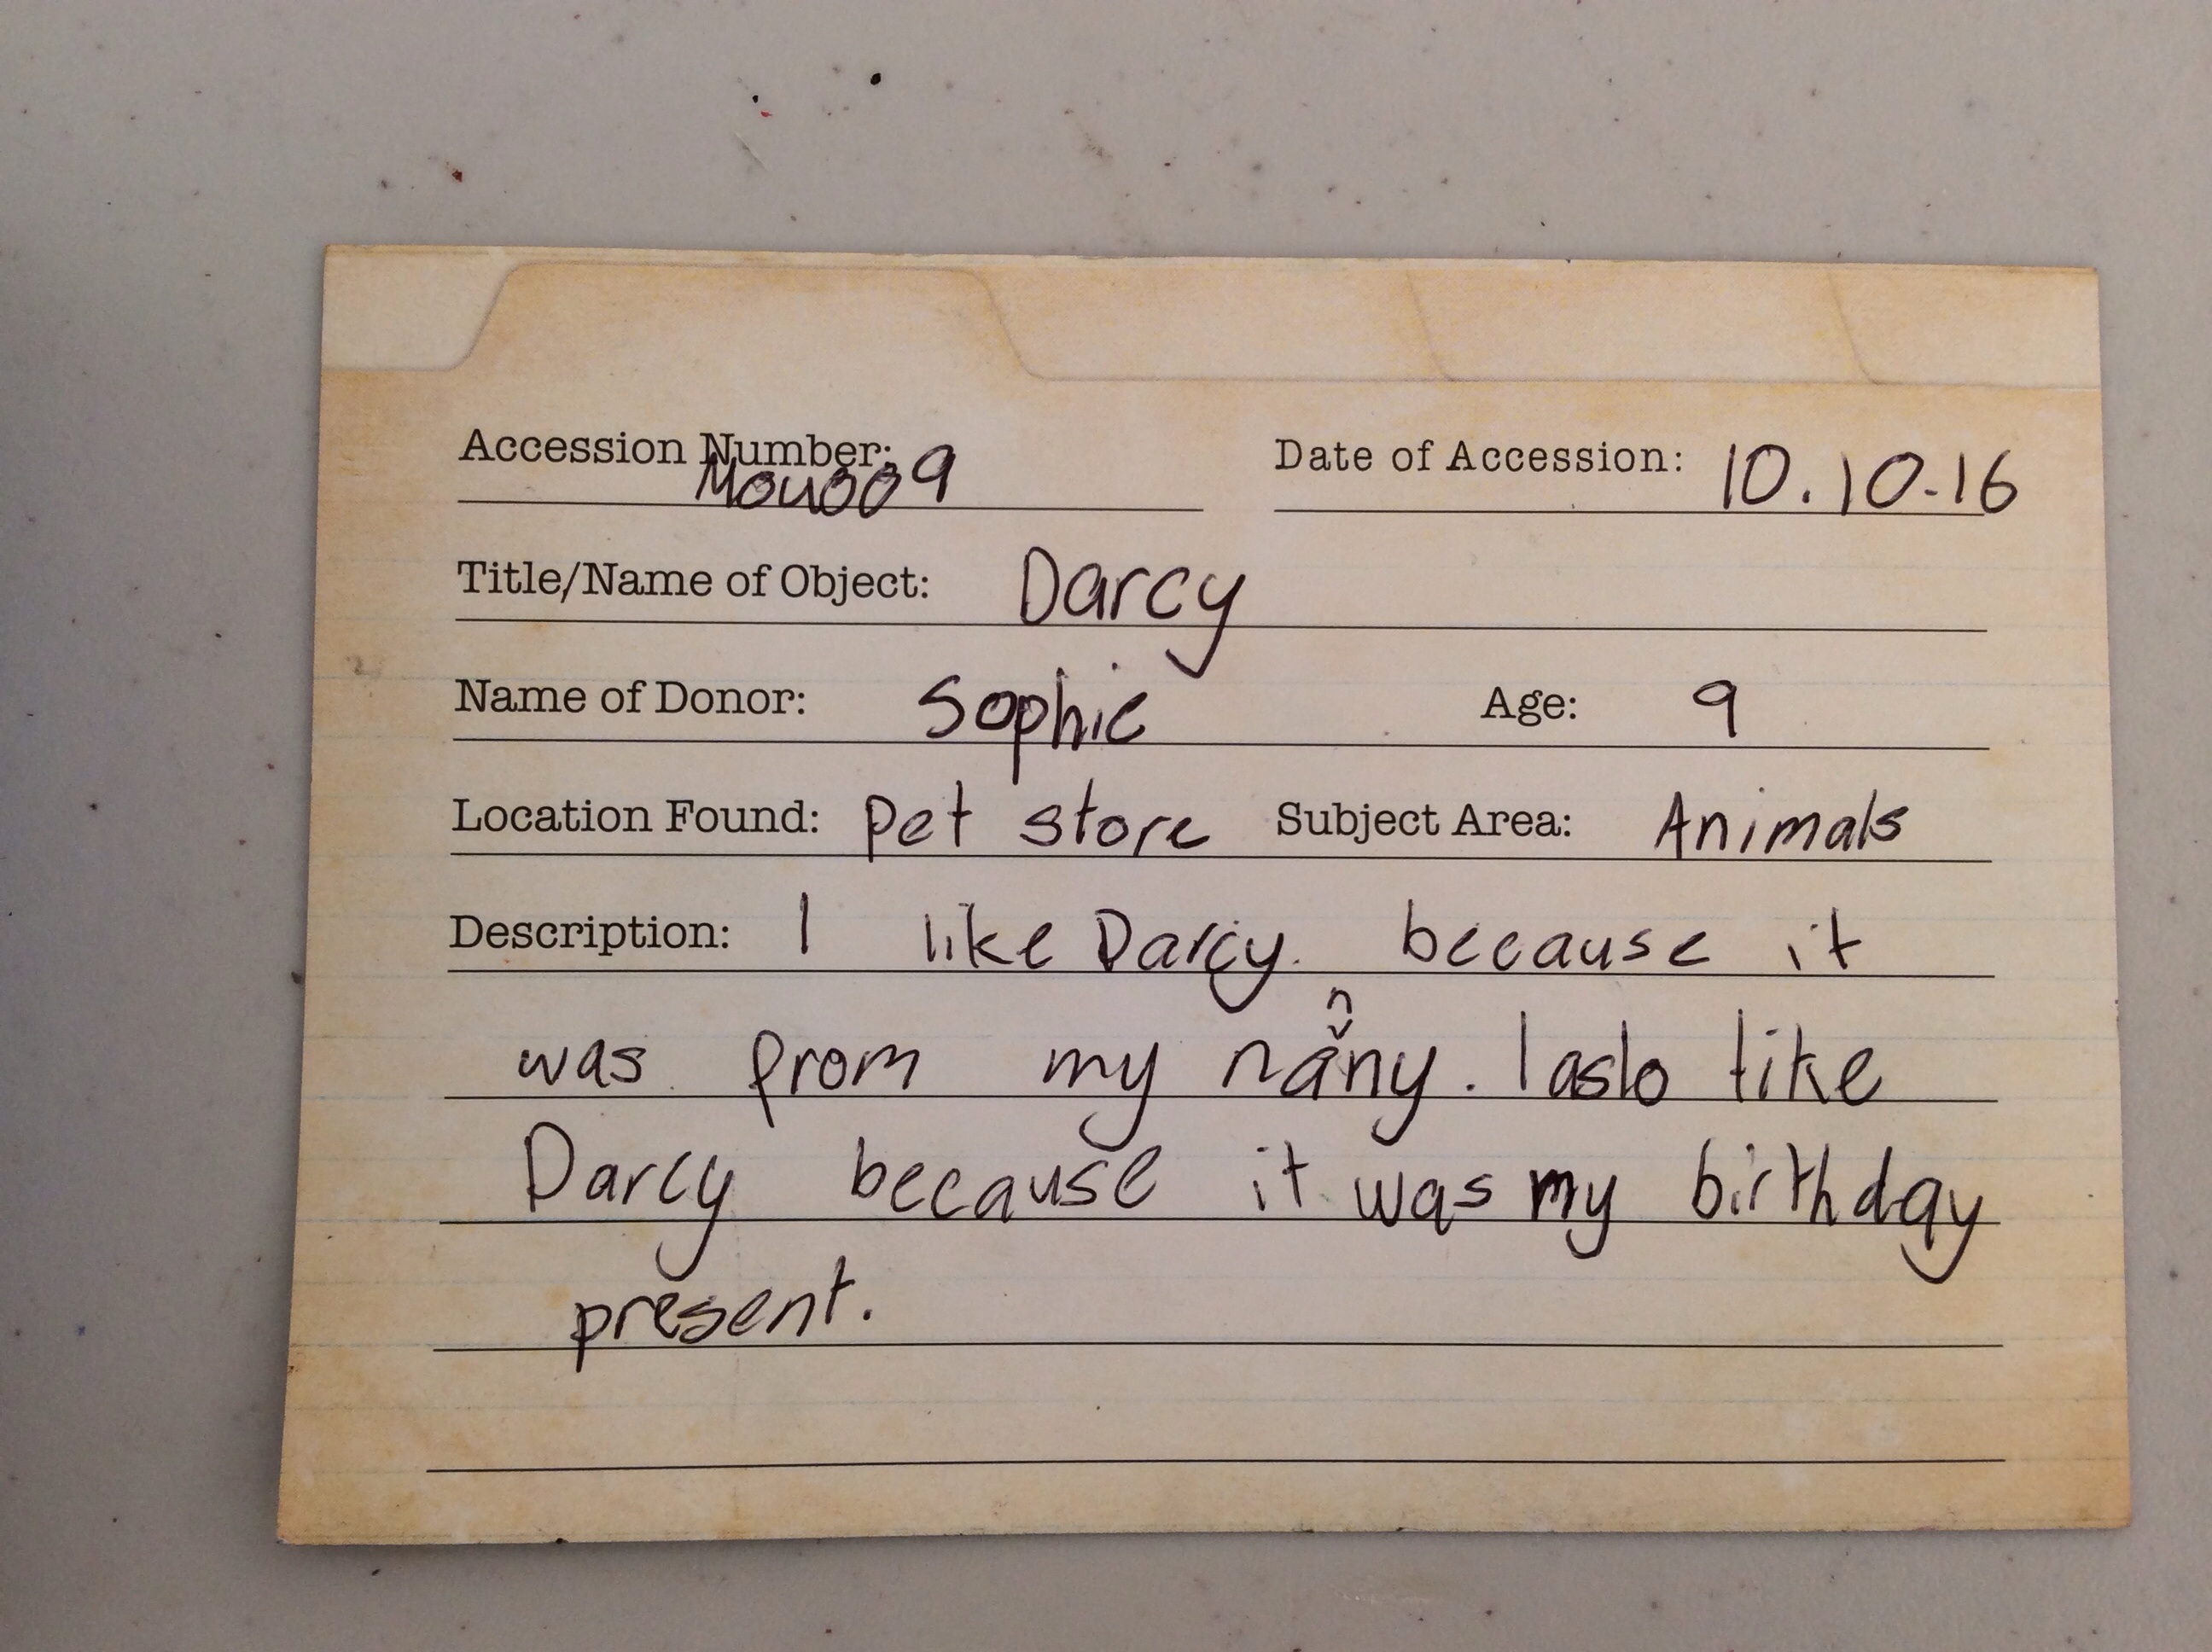 Accession Number: Mou009 Date of Accession: 10.10.16
Title/Name of Object: Darcy
Name of Donor: Sophie Age: 9
Location Found: Pet store Subject Area: Animals
Description: I like Darcy. because it
was from my nanny. I aslo like
Darcy because it was my birthday
present.